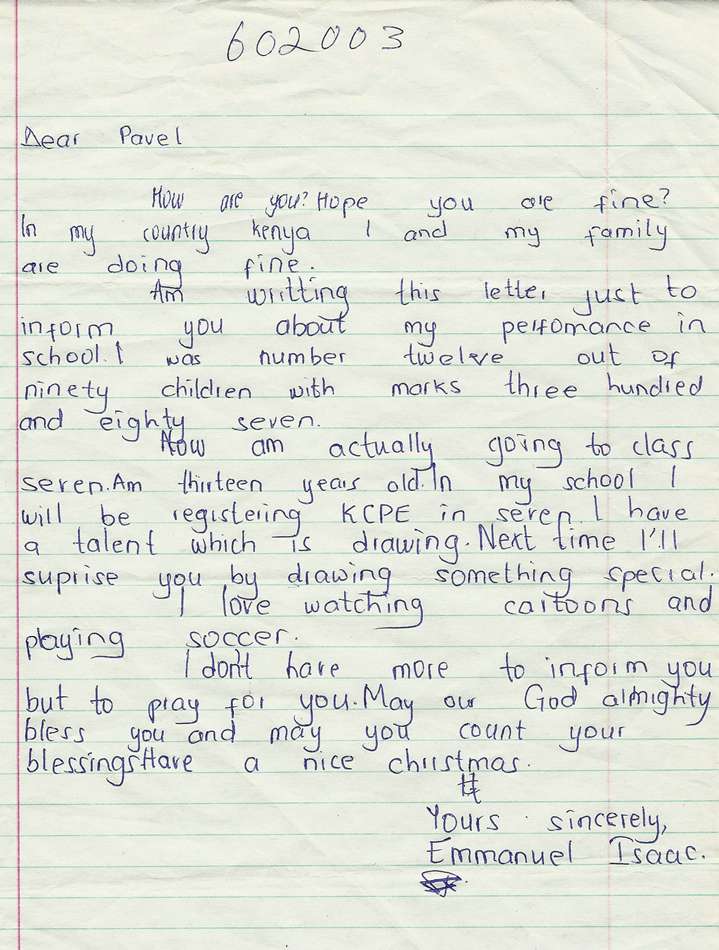 602003
Dear Pavel
How are you? Hope you are fine?
In my country kenya I and my family
are doing fine.
Am writting this letter just to
inform you about my perfomance in
school. I was number twelve out of
ninety children with marks three hundred
and eighty seven.
Now am actually going to class
seven. Am thirteen years old. In my school I
will be registering KCPE in seven. I have
a talent which is drawing. Next time I'll
suprise you by drawing something special.
I love watching cartoons and
playing soccer.
I don't have more to inform you
but to pray for you. May our God almighty
bless you and may you count your
blessings Have a nice christmas.
Yours sincerely,
Emmanuel Isaac.